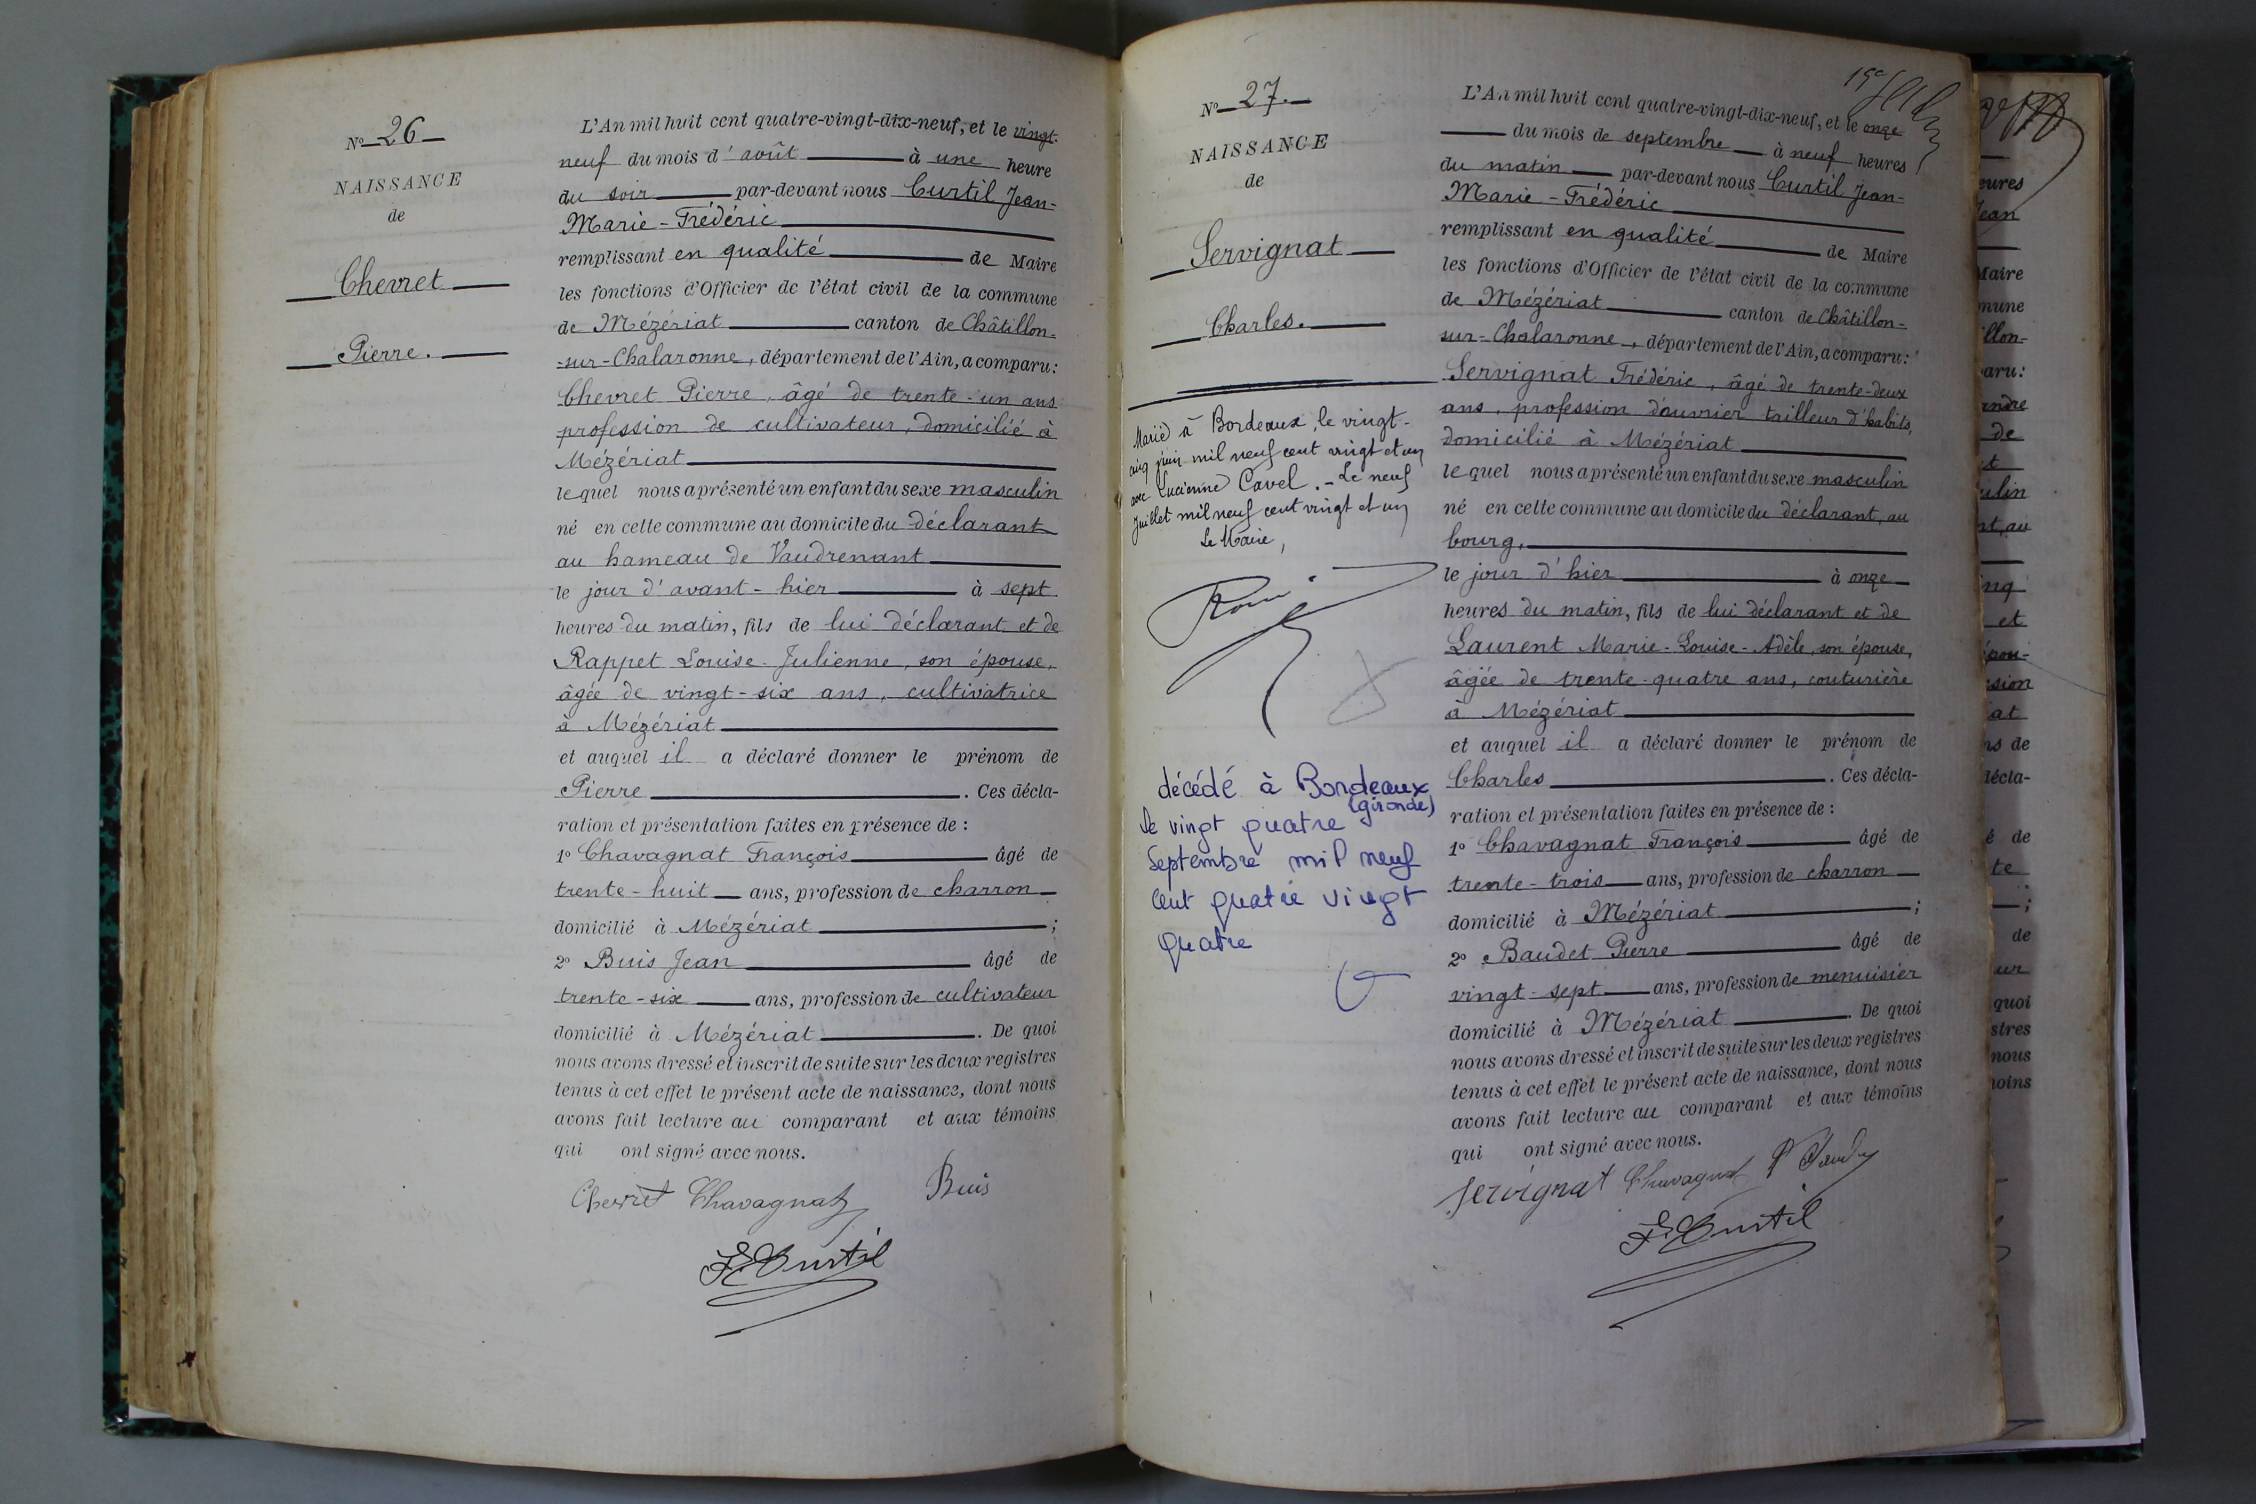 N° 26
NAISSANCE
de
Chevret
Pierre.
L'An mil huit cent quatre-vingt-dix-neuf, et le vingt-
neuf du mois d'août à une heure
du soir par-devant nous Curtil Jean-
Marie-Frédéric
remplissant en qualité de Maire
les fonctions d'Officier de l'état civil de la commune
de Mézériat canton de Châtillon-
-sur-Chalaronne, département de l'Ain, a comparu:
Chevret Pierre, âgé de trente-un ans
profession de cultivateur, domicilié à
Mézériat
lequel nous a présenté un enfant du sexe masculin
né en cette commune au domicile du déclarant
au hameau de Vaudrenant
le jour d'avant-hier à sept
heures du matin, fils de lui déclarant et de
Rappet Louise-Julienne, son épouse,
âgée de vingt-six ans, cultivatrice
à Mézériat
et auquel il a déclaré donner le prénom de
Pierre. Ces décla-
ration et présentation faites en présence de :
1° Chavagnat François âgé de
trente-huit ans, profession de charron
domicilié à Mézériat ;
2° Buis Jean âgé de
trente-six ans, profession de cultivateur
domicilié à Mézériat. De quoi
nous avons dressé et inscrit de suite sur les deux registres
tenus à cet effet le présent acte de naissance, dont nous
avons fait lecture au comparant et aux témoins
qui ont signé avec nous.
Chevret Chavagnat Buis
F. Curtil
N° 27.
NAISSANCE
de
Servignat
Charles.
Marié à Bordeaux, le vingt-
cinq juin mil neuf cent vingt et un
avec Lucienne Cavel. - Le neuf
Juillet mil neuf cent vingt et un
Le Maire,
décédé à Bordeaux
(gironde)
le vingt quatre
Septembre mil neuf
cent quatre vingt
quatre
L'An mil huit cent quatre-vingt-dix-neuf, et le onze
du mois de septembre à neuf heures
du matin par-devant nous Curtil Jean-
Marie-Frédéric
remplissant en qualité de Maire
les fonctions d'Officier de l'état civil de la commune
de Mézériat canton de Châtillon-
sur-Chalaronne, département de l'Ain, a comparu:
Servignat Frédéric, âgé de trente-deux
ans, profession d'ouvrier tailleur d'habits,
domicilié à Mézériat
lequel nous a présenté un enfant du sexe masculin
né en cette commune au domicile du déclarant, au
bourg,
le jour d'hier à onze
heures du matin, fils de lui déclarant et de
Laurent Marie-Louise-Adèle, son épouse,
âgée de trente-quatre ans, couturière
à Mézériat
et auquel il a déclaré donner le prénom de
Charles. Ces décla-
ration et présentation faites en présence de :
1° Chavagnat François âgé de
trente-trois ans, profession de charron
domicilié à Mézériat ;
2° Baudet Pierre âgé de
vingt-sept ans, profession de menuisier
domicilié à Mézériat. De quoi
nous avons dressé et inscrit de suite sur les deux registres
tenus à cet effet le présent acte de naissance, dont nous
avons fait lecture au comparant et aux témoins
qui ont signé avec nous.
Servignat Chavagnat
F. Curtil